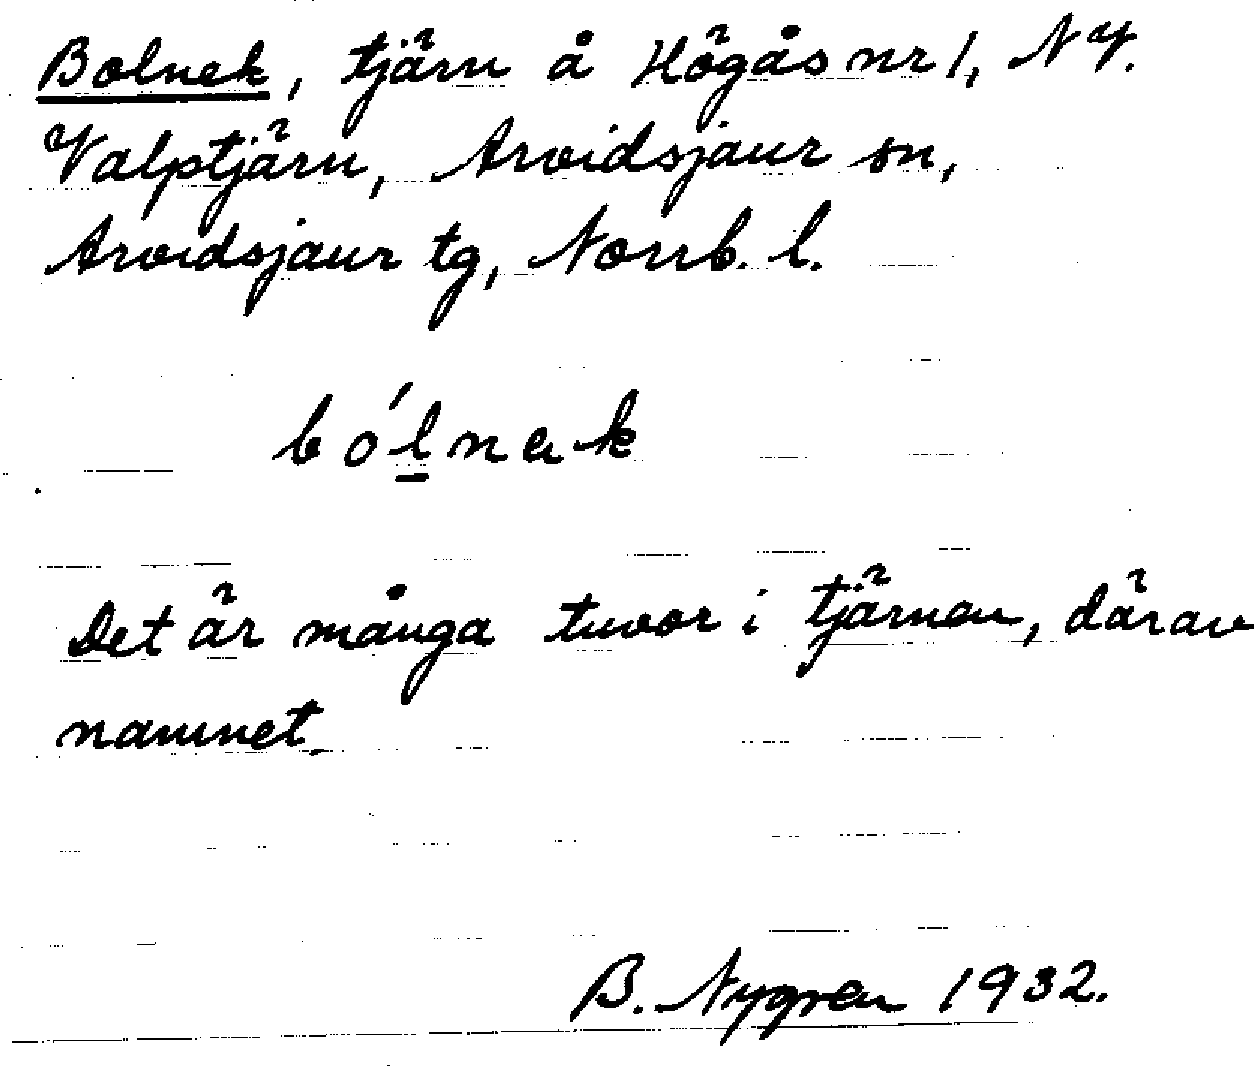 Bolnek, tjärn å Högås nr 1, NV.
Valptjärn, Arvidsjaur sn,
Arvidsjaur tg, Norrb. l.
bólnek
Det är många tuvor i tjärnen, därav
namnet.
B. Nygren 1932.